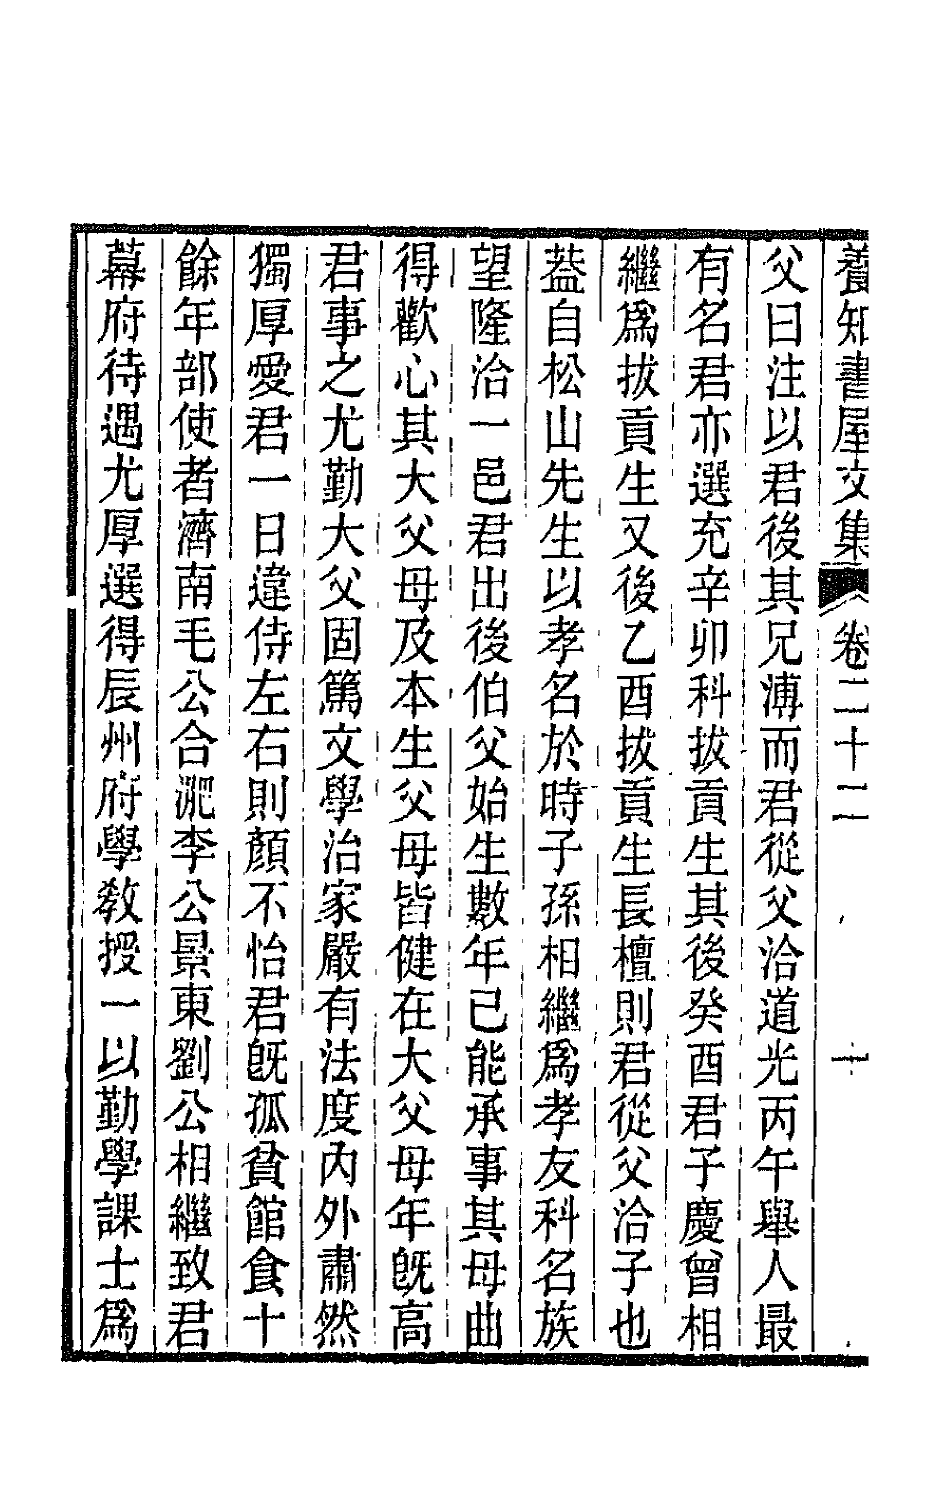 養知書屋文集 卷二十二 十
父曰注以君後其兄溥而君從父洽道光丙午舉人最
有名君亦選充辛卯科拔貢生其後癸酉君子慶曾相
繼爲拔貢生又後乙酉拔貢生長檀則君從父洽子也
葢自松山先生以孝名於時子孫相繼爲孝友科名族
望隆洽一邑君出後伯父始生數年已能承事其母曲
得歡心其大父母及本生父母皆健在大父母年旣高
君事之尤勤大父固篤文學治家嚴有法度內外肅然
獨厚愛君一日違侍左右則顏不怡君旣孤貧館食十
餘年部使者濟南毛公合淝李公景東劉公相繼致君
幕府待遇尤厚選得辰州府學敎授一以勤學課士爲